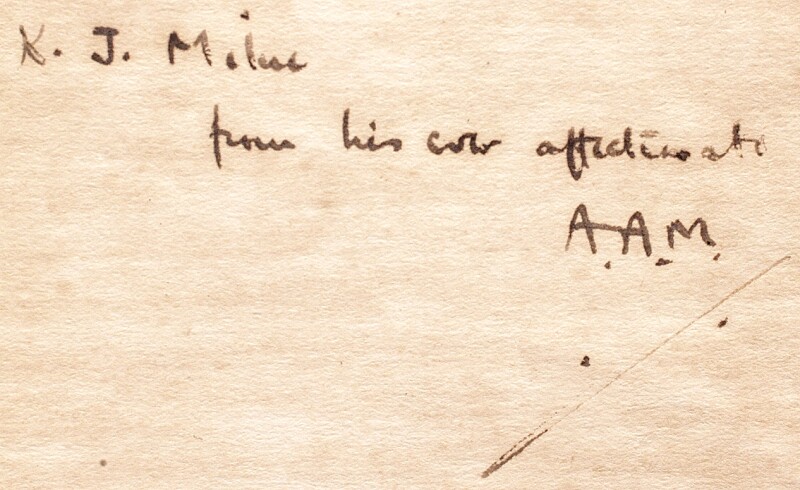 K. J. Milne
from his ever affectionate
A.A.M.